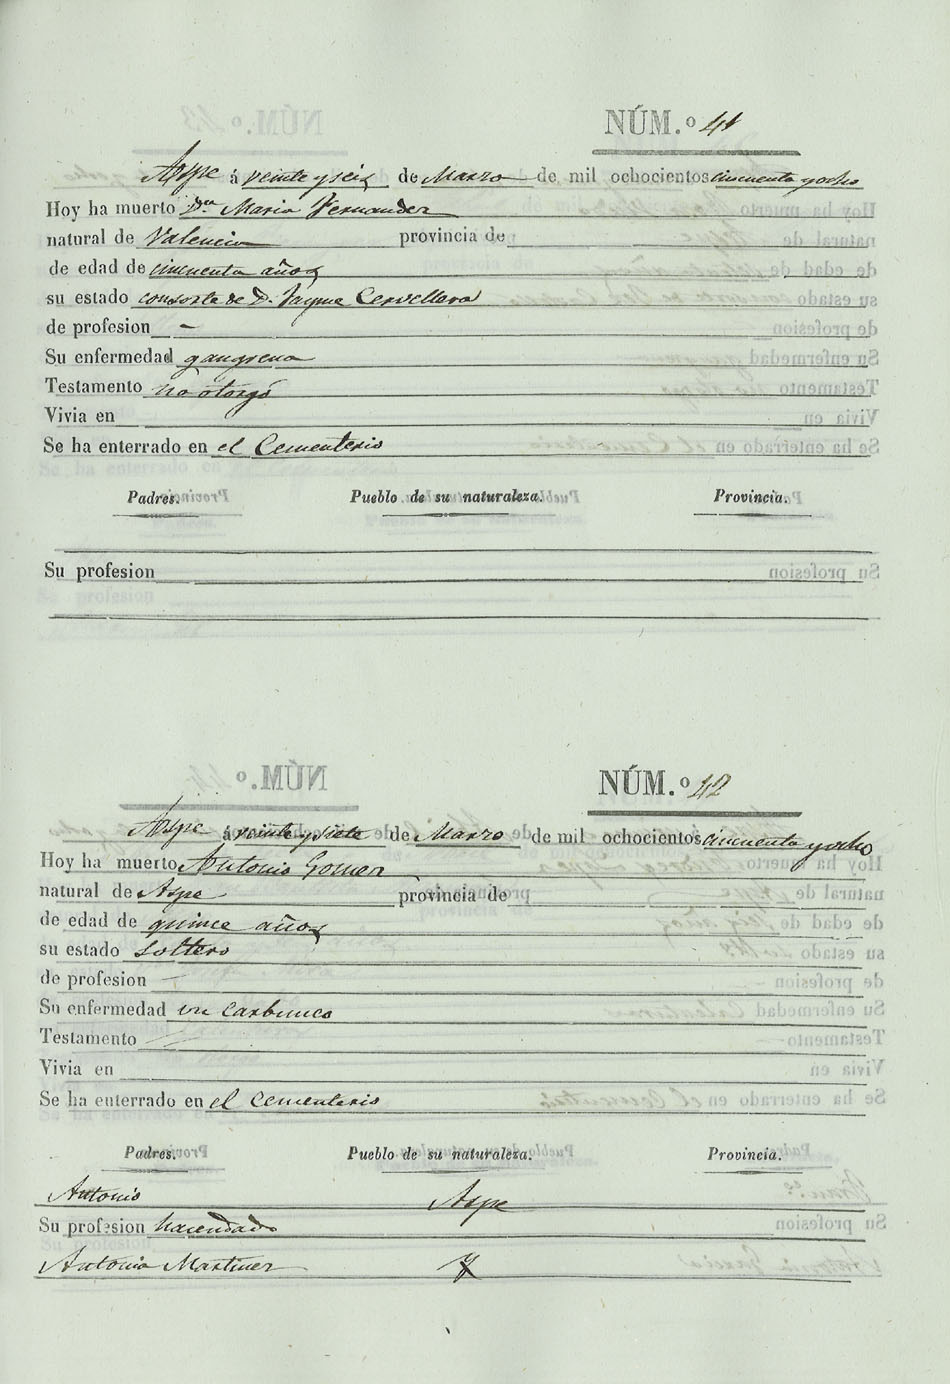 NÚM.º 41
Aspe á veinte y seis de Marzo de mil ochocientos cincuenta y ocho
Hoy ha muerto Dª Maria Fernandez
natural de Valencia provincia de
de edad de cincuenta años
su estado consorte de D. Jayme Cervellera
de profesion -
Su enfermedad gangrena
Testamento no otorgó
Vivia en
Se ha enterrado en el Cementerio
Padres. Pueblo de su naturaleza. Provincia.
Su profesion
NÚM.º 42
Aspe á veinte y siete de Marzo de mil ochocientos cincuenta y ocho
Hoy ha muerto Antonio Gomez
natural de Aspe provincia de
de edad de quince años
su estado soltero
de profesion -
Su enfermedad un carbunco
Testamento
Vivia en
Se ha enterrado en el Cementerio
Padres. Pueblo de su naturaleza. Provincia.
Antonio Aspe
Su profesion hacendado
Antonia Martinez